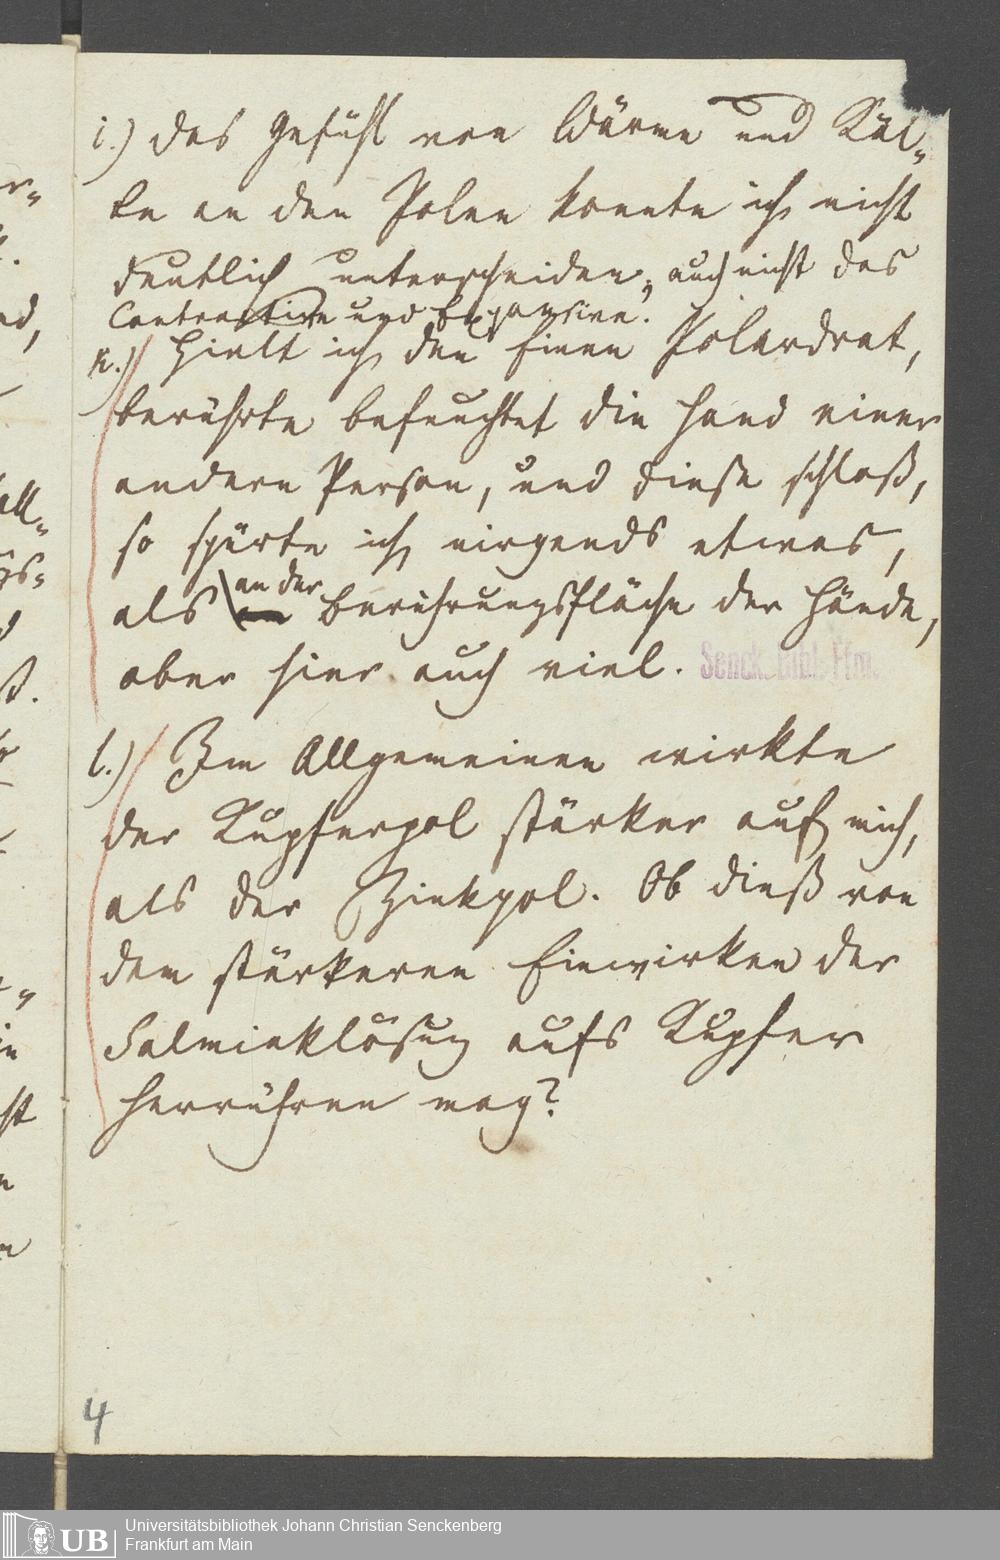 i.) das Gefühl von Wärme und Käl-
te an den Polen konnte ich nicht
deutlich unterscheiden, auch nicht das
Contraction und Expansion.
k.) Hielt ich den einen Polardrat,
berührte befeuchtet die Hand einer
andern Person, und diese schloß,
so spürte ich nirgends etwas,
als an der Berührungsfläche der Hände,
aber hier auch viel.
Senck. Bibl. Ffm.
l.) Im Allgemeinen wirkte
der Kupferpol stärker auf mich,
als der Zinkpol. Ob dieß von
dem stärkeren Einwirken der
Salmiaklösung aufs Kupfer
herrühren mag?
4
UB
Universitätsbibliothek Johann Christian Senckenberg
Frankfurt am Main